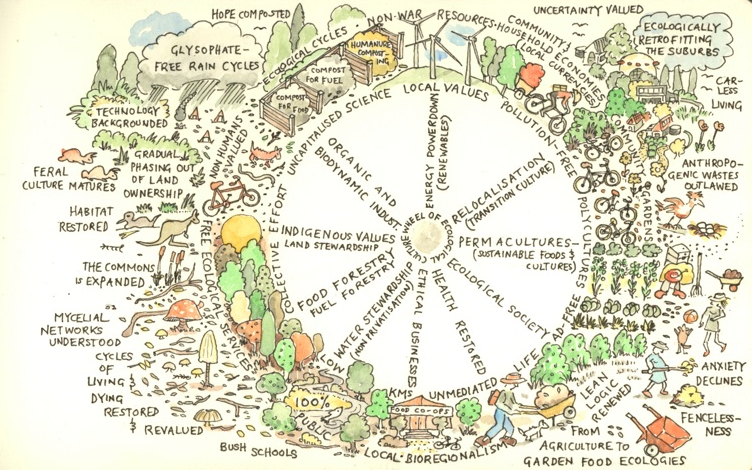 HOPE COMPOSTED
NON-WAR
RESOURCES
COMMUNITY &
HOUSEHOLD ECONOMIES
LOCAL EXPRESSED
UNCERTAINTY VALUED
ECOLOGICALLY
RETROFITTING
THE SUBURBS
GLYSOPHATE-
FREE RAIN CYCLES
ECOLOGICAL CYCLES
HUMANURE
COMPOST-
ING
COMPOST
FOR FUEL
COMPOST
FOR FOOD
CAR-
LESS
LIVING
TECHNOLOGY
BACKGROUNDED
NON HUMANS
VALUED
UNCAPITALISED SCIENCE
LOCAL VALUES
POLLUTION-FREE
COMMUNITY
GARDENS
FERAL
CULTURE MATURES
GRADUAL
PHASING OUT
OF LAND
OWNERSHIP
ANTHROPO-
GENIC WASTES
OUTLAWED
HABITAT
RESTORED
COLLECTIVE EFFORT
FREE ECOLOGICAL SERVICES
ENERGY POWERDOWN
(RENEWABLES)
RELOCALISATION
(TRANSITION CULTURE)
PERMACULTURES-
(SUSTAINABLE FOODS &
CULTURES)
ECOLOGICAL SOCIETY
HEALTH RESTORED
ETHICAL BUSINESSES
WATER STEWARDSHIP
(NON PRIVATISATION)
FOOD FORESTRY
FUEL FORESTRY
INDIGENOUS VALUES
LAND STEWARDSHIP
ORGANIC AND
BIODYNAMIC INDUST
WHEEL OF ECOLOGICAL CULTURE
POLYCULTURES
THE COMMONS
IS EXPANDED
MYCELIAL
NETWORKS
UNDERSTOOD
CYCLES
OF
LIVING &
DYING
RESTORED
&
REVALUED
AD FREE
LIFE
UNMEDIATED
LOW
KMS
100%
PUBLIC
FOOD CO-OPS
LEAN
LOGIC
RENEWED
ANXIETY
DECLINES
FENCELESS-
NESS
FROM
AGRICULTURE TO
GARDEN FOOD ECOLOGIES
BUSH SCHOOLS
LOCAL BIOREGIONALISM